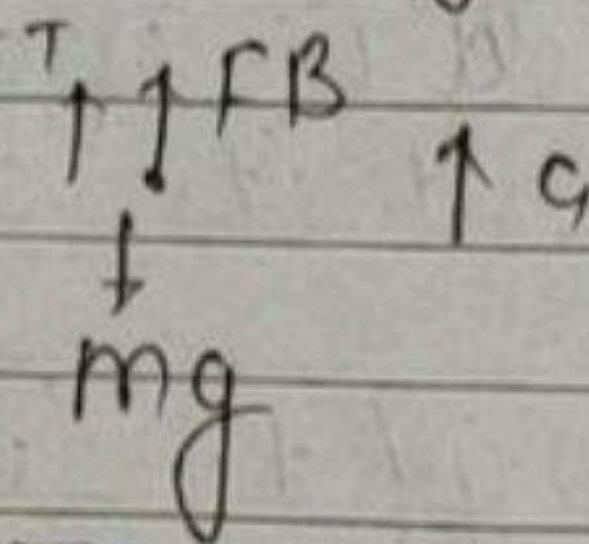 T FB
a
mg